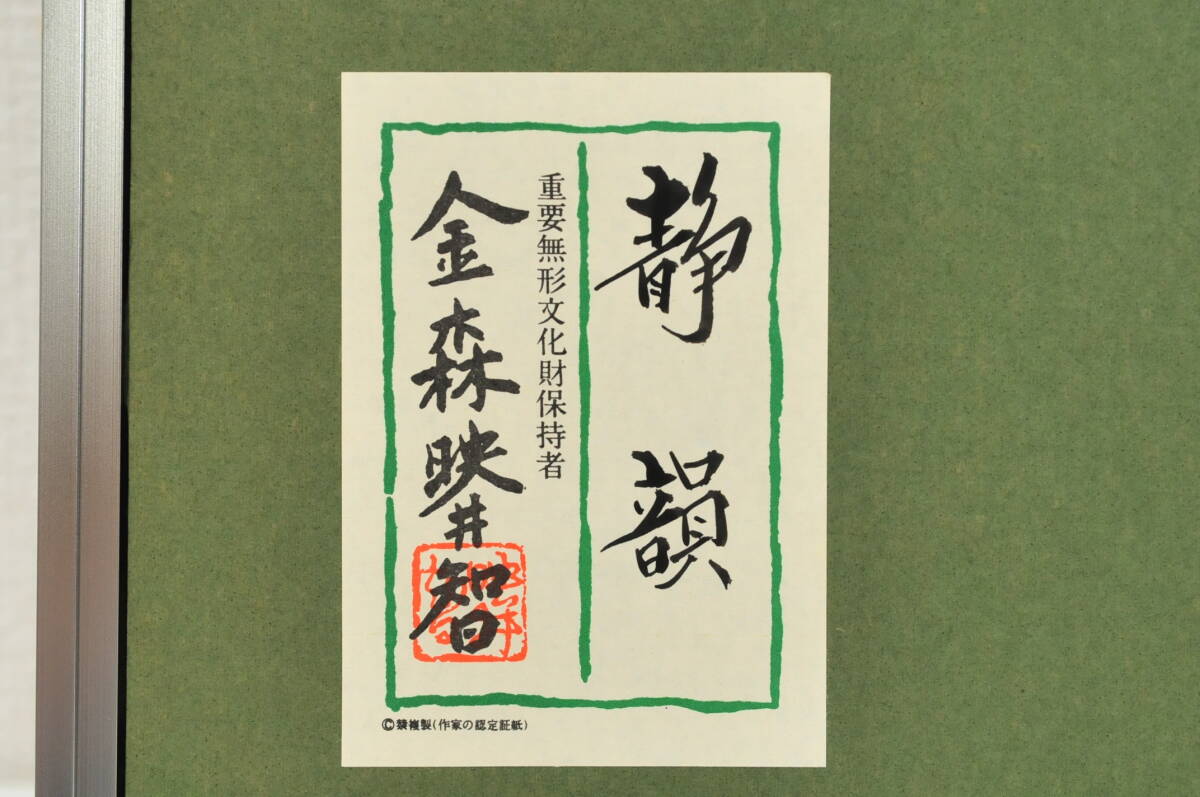 静韻
重要無形文化財保持者
金森映井智
©禁複製(作家の認定証紙)